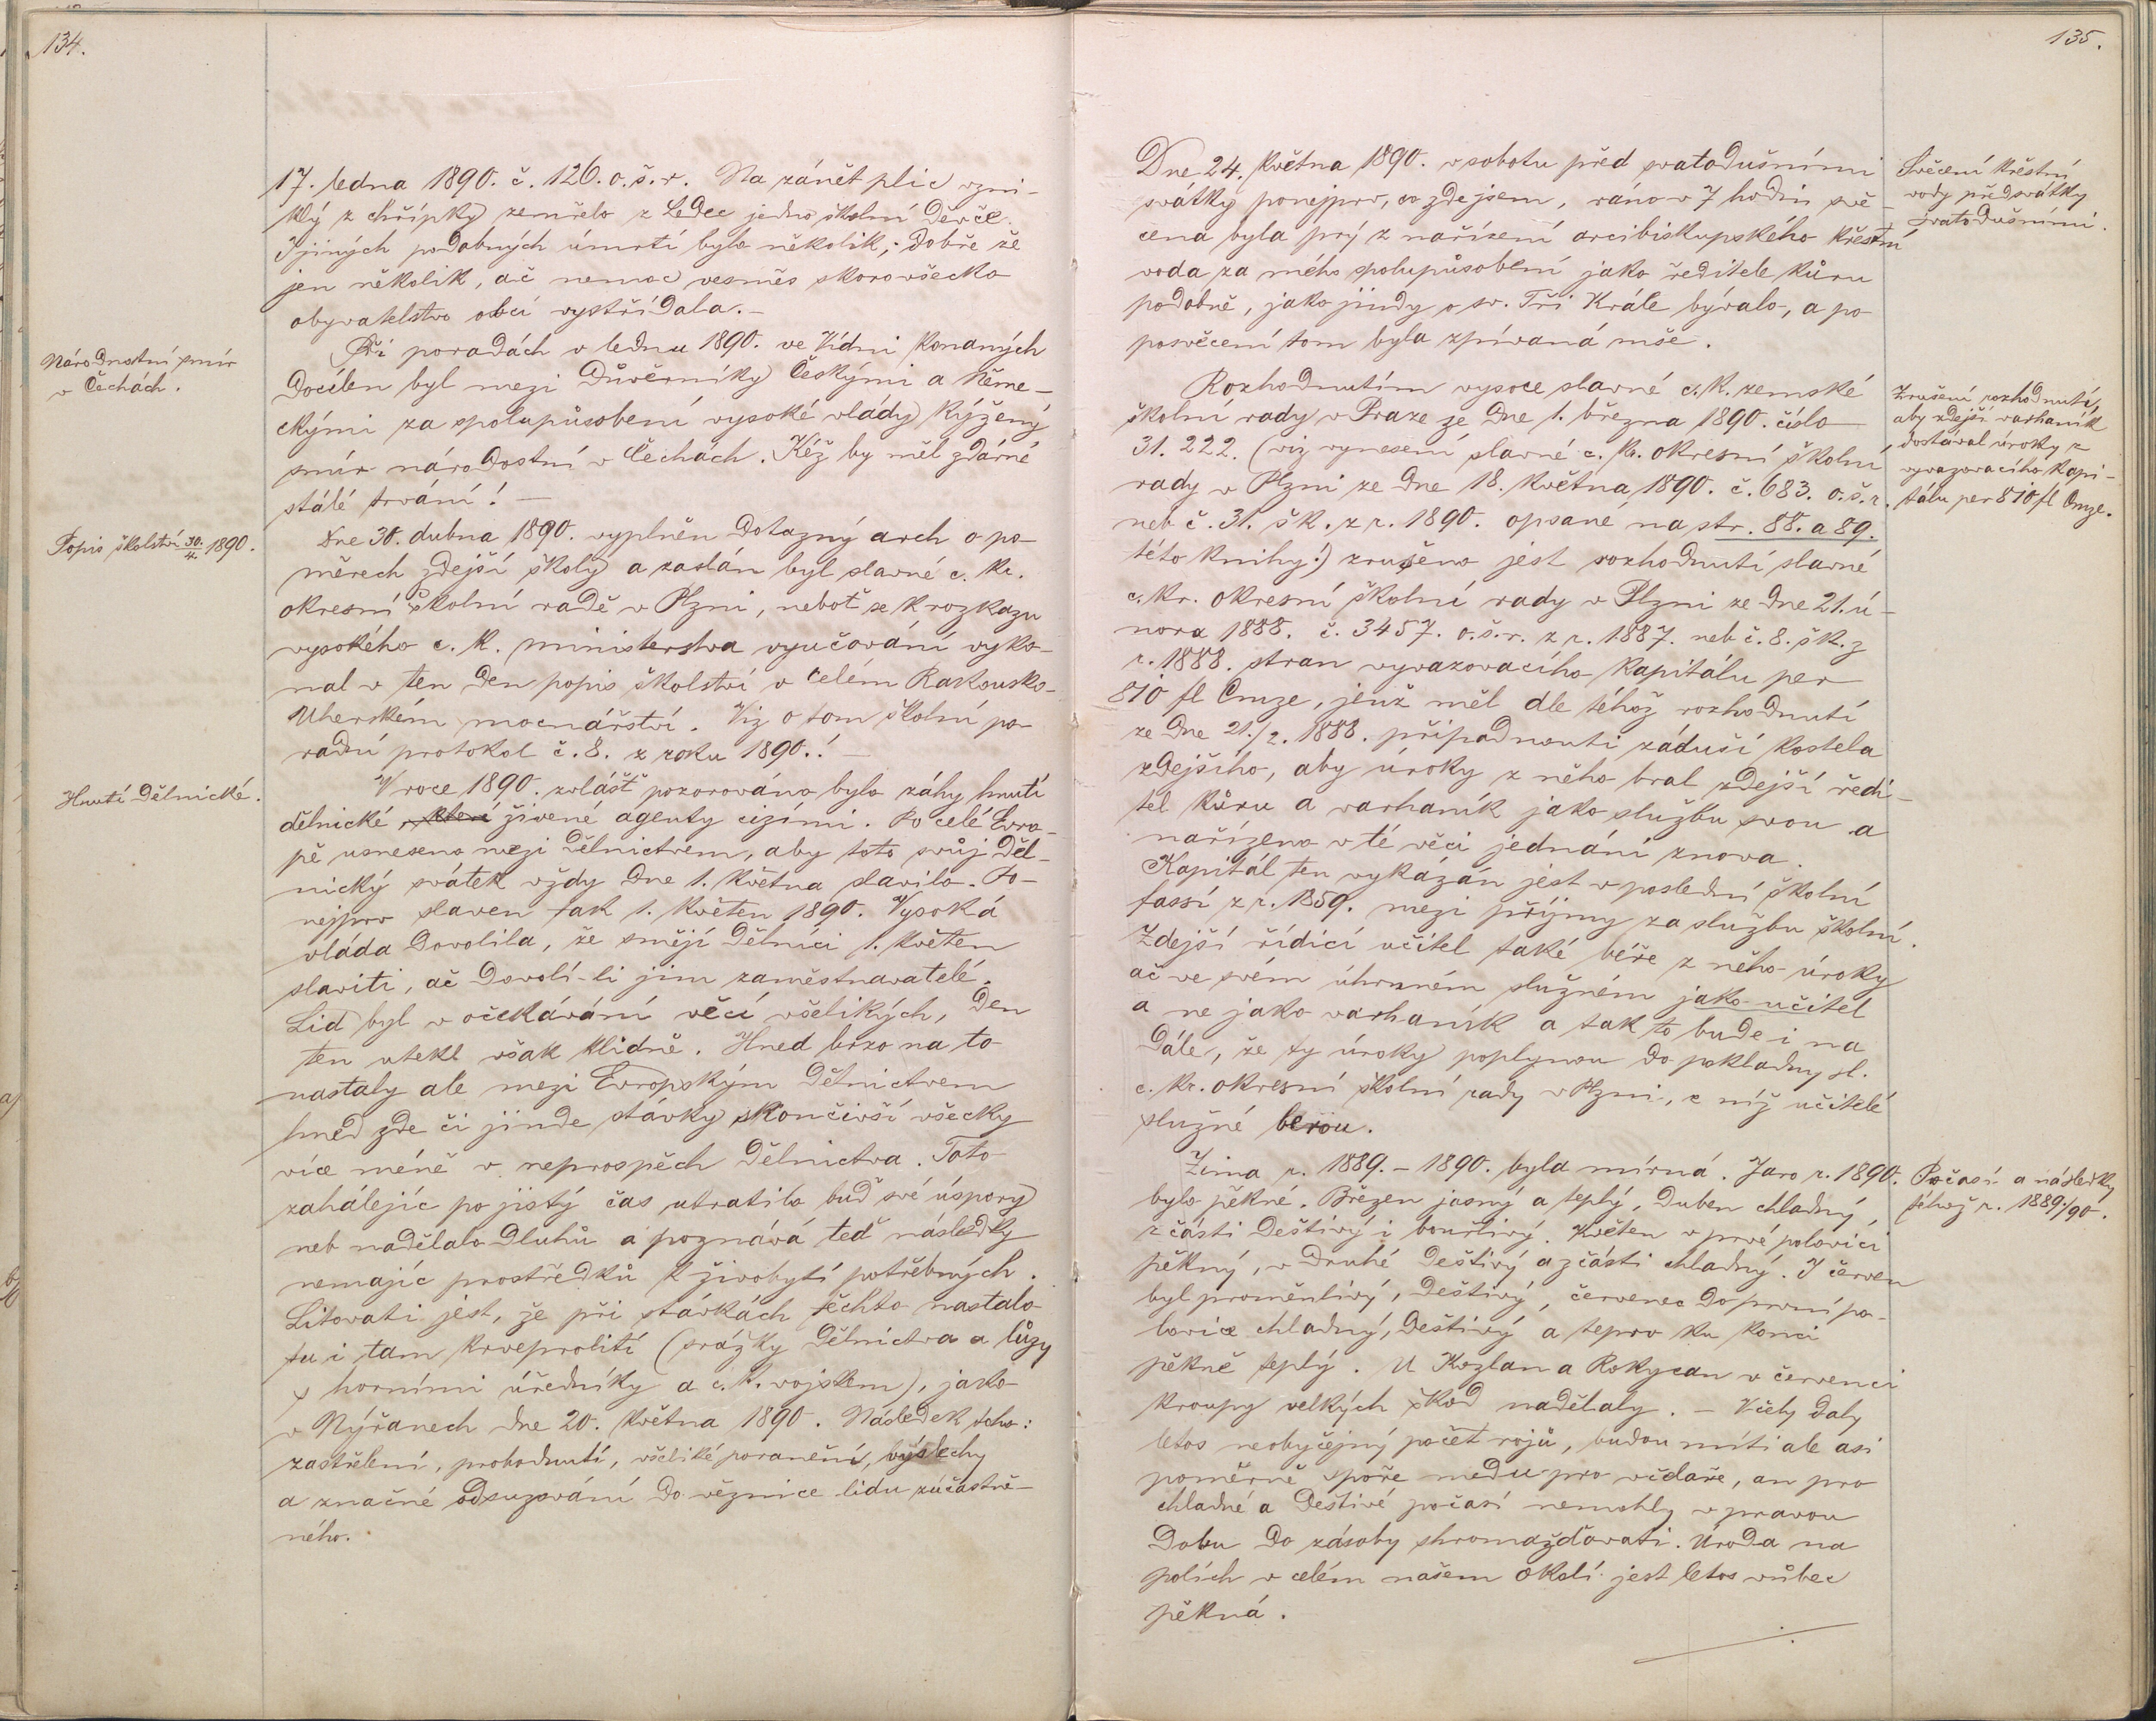 134.
17. ledna 1890. č. 126. o. š. r. Na zánět plic vzni-
klý z chřipky zemřelo z Ledec jedno školní děvče.
I jiných podobných úmrtí bylo několik; dobře že
jen několik, ač nemoc vesměs skoro všecko
obyvatelstvo obcí vystřídala. –
Národnostní smír
v Čechách.
Při poradách v lednu 1890. ve Vídni konaných
docílen byl mezi důvěrníky českými a něme-
ckými za spolupůsobení vysoké vlády kýžený
smír národostní v Čechách. Kéž by měl zdárné
stálé trvání! —
Popis školství 30./4. 1890.
Dne 30. dubna 1890. vyplněn dotazný arch o po-
měrech zdejší školy a zaslán byl slavné c. kr.
okresní školní radě v Plzni, neboť se k rozkazu
vysokého c. k. ministerstva vyučování vyko-
nal v ten den popis školství v celém Rakousko-
Uherském mocnářství. Viz o tom školní po-
radní protokol č. 8. z roku 1890.! —
Hnutí dělnické.
V roce 1890. zvlášť pozorováno bylo záhy hnutí
dělnické které živené agenty cizími. Po celé Evro-
pě usneseno mezi dělnictvem, aby toto svůj děl-
nický svátek vždy dne 1. května slavilo. Po-
nejprv slaven tak 1. květen 1890. Vysoká
vláda dovolila, že smějí dělníci 1. květen
slaviti, ač dovolí-li jim zaměstnavatelé.
Lid byl v očekávání věcí všelikých, den
ten utekl však klidně. Hned brzo na to
nastaly ale mezi Evropským dělnictvem
hned zde či jinde stávky skončivší všecky
více méně v neprospěch dělnictva. Toto
zahálejíc po jistý čas utratilo buď své úspory
neb nadělalo dluhů a poznává teď následky
nemajíc prostředků k živobytí potřebných.
Litovati jest, že při stávkách těchto nastalo
tu i tam krveprolití (srážky dělnictva a lůzy
s horními úředníky a c. k. vojskem), jako
v Nýřanech dne 20. května 1890. Následek toho:
zastřelení, probodnutí, všeliké poranění, výslechy
a značné odsuzování do věznice lidu zúčastně-
ného.
135.
Dne 24. května 1890. v sobotu před svatodušními
svátky ponejprv, co zde jsem, ráno v 7 hodin svě-
cena byla prý z nařízení arcibiskupského křestní
voda za mého spolupůsobení jako ředitele kůru
podobně, jako jindy o sv. Tři Krále bývalo, a po
posvěcení tom byla zpívaná mše.
Svěcení křestní
vody před svátky
svatodušními.
Rozhodnutím vysoce slavné c. k. zemské
školní rady v Praze ze dne 1. března 1890. číslo
31. 222. (viz vynesení slavné c. kr. okresní školní
rady v Plzni ze dne 18. května 1890. č. 683. o. š. r.
neb č. 31. šk. z r. 1890. opsané na str. 88. a 89.
této knihy!) zrušeno jest rozhodnutí slavné
c. kr. okresní školní rady v Plzni ze dne 21. ú-
nora 1888. č. 3457. o. š. r. z r. 1887. neb č. 8. šk. z
r. 1888. stran vyvazovacího kapitálu per
810 fl Cmze, jenž měl dle téhož rozhodnutí
ze dne 21./2. 1888. připadnouti záduší kostela
zdejšího, aby úroky z něho bral zdejší ředi-
tel kůru a varhaník jako službu svou a
nařízeno v té věci jednání znova.
Kapitál ten vykázán jest v poslední školní
fassí z r. 1859. mezi příjmy za službu školní.
Zdejší řídící učitel také béře z něho úroky
ač ve svém úhrnném služném jako učitel
a ne jako varhaník a tak to bude i na
dále, že ty úroky poplynou do pokladny sl.
c. kr. okresní školní rady v Plzni, z níž učitelé
služné berou.
Zrušení rozhodnutí,
aby zdejší varhaník
dostával úroky z
vyvazovacího kapi-
tálu per 810 fl Cmze.
Zima r. 1889. – 1890. byla mírná. Jaro r. 1890.
bylo pěkné. Březen jasný a teplý, duben chladný
z části deštivý i bouřlivý. Květen v prvé polovici
pěkný, v druhé deštivý a zčásti chladný. I červen
byl proměnlivý, deštivý, červenec do první po-
lovice chladný, deštivý a teprv ku konci
pěkně teplý. U Kozlan a Rokycan v červenci
kroupy velkých škod nadělaly. – Včely daly
letos neobyčejný počet rojů, budou míti ale asi
poměrně spoře medu pro včelaře, an pro
chladné a deštivé počasí nemohly v pravou
dobu do zásoby shromažďovati. Úroda na
polích v celém našem okolí jest letos vůbec
pěkná.
Počasí a následky
téhož r. 1889./90.